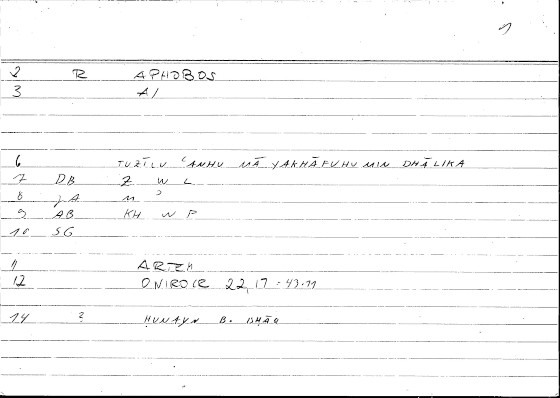 1
2 R APHOBOS
3 A1
6 TUZĪLU ʿANHU MĀ YAKHĀFUHU MIN DHĀLIKA
7 DB Z W L
8 JA M ʾ
9 AB KH W F
10 SG
11 ARTEM
12 ONIROCR 22,17 = 43.11
14 ? ḤUNAYN B. ISḤĀQ